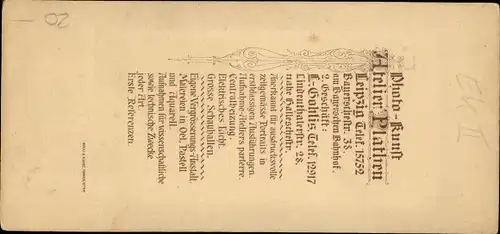 Photo-Kunst
Atelier Plathen
Leipzig Telef. 15752
Bayerschestr. 38.
am Bayerischen Bahnhof.
2. Geschäft:
L.-Gohlis, Telef. 12917
Lindenthalerstr. 28.
nahe Hallischestr.
Anerkannt für ausdrucksvolle
zeitgemässe Portraits in
erstklassigen Ausführungen.
Aufnahme-Ateliers parterre.
Centralheizung.
Elektrisches Licht.
Grosse Schauhallen.
Eigene Vergrösserungs-Anstalt.
Malereien in Oel, Pastell
und Aquarell.
Aufnahmen für wissenschaftliche
sowie technische Zwecke
jeder Art.
Erste Referenzen.
20